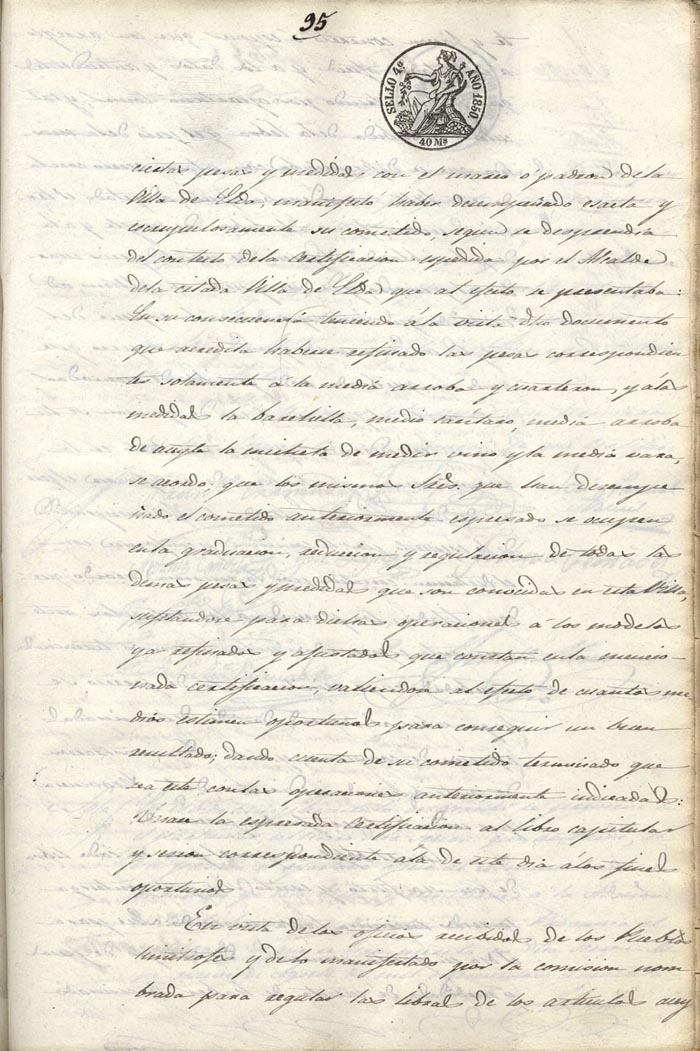 95
SELLO 4º AÑO 1850
40 Ms
ciertas pesas y medidas con el marco o padron de la
Villa de Elda; manifesto haber desempeñado esacta y
escrupulosamente su cometido, segun se desprendia
del contesto de la certificacion espedida por el Alcalde
dela citada Villa de Elda que al efecto se presentaba:
En su consecuencia teniendo á la vista dho documento
que acredita haberse refinado las pesas correspondien
tes solamente á la media arroba y cuarteron, y á las
medidas la barchilla, medio cántaro, media arroba
de aceyte la micheta de medir vino y la media vara,
se acordó que los mismos Sres. que han desempe
ñado el cometido anteriormente espresado se ocupen
en la graduacion, reduccion y regulacion de todas las
demas pesas y medidas que son conocidas en esta Villa,
sugetandose para dichas operaciones á los modelos
ya refinados y ajustados que constan en la mencio-
nada certificacion, valiendose al efecto de cuantos me
dios estimen oportunos para conseguir un buen
resultado; dando cuenta de su cometido terminado que
sea este con las operaciones anteriormente indicadas:
Unase la espresada certificacion al libro capitular
y sesion correspondiente á la de este dia á los fines
oportunos
En vista de los oficios recibidos de los Pueblos
limitrofes y de lo manifestado por la comision nom
brada para regular las libras de los articulos cuy